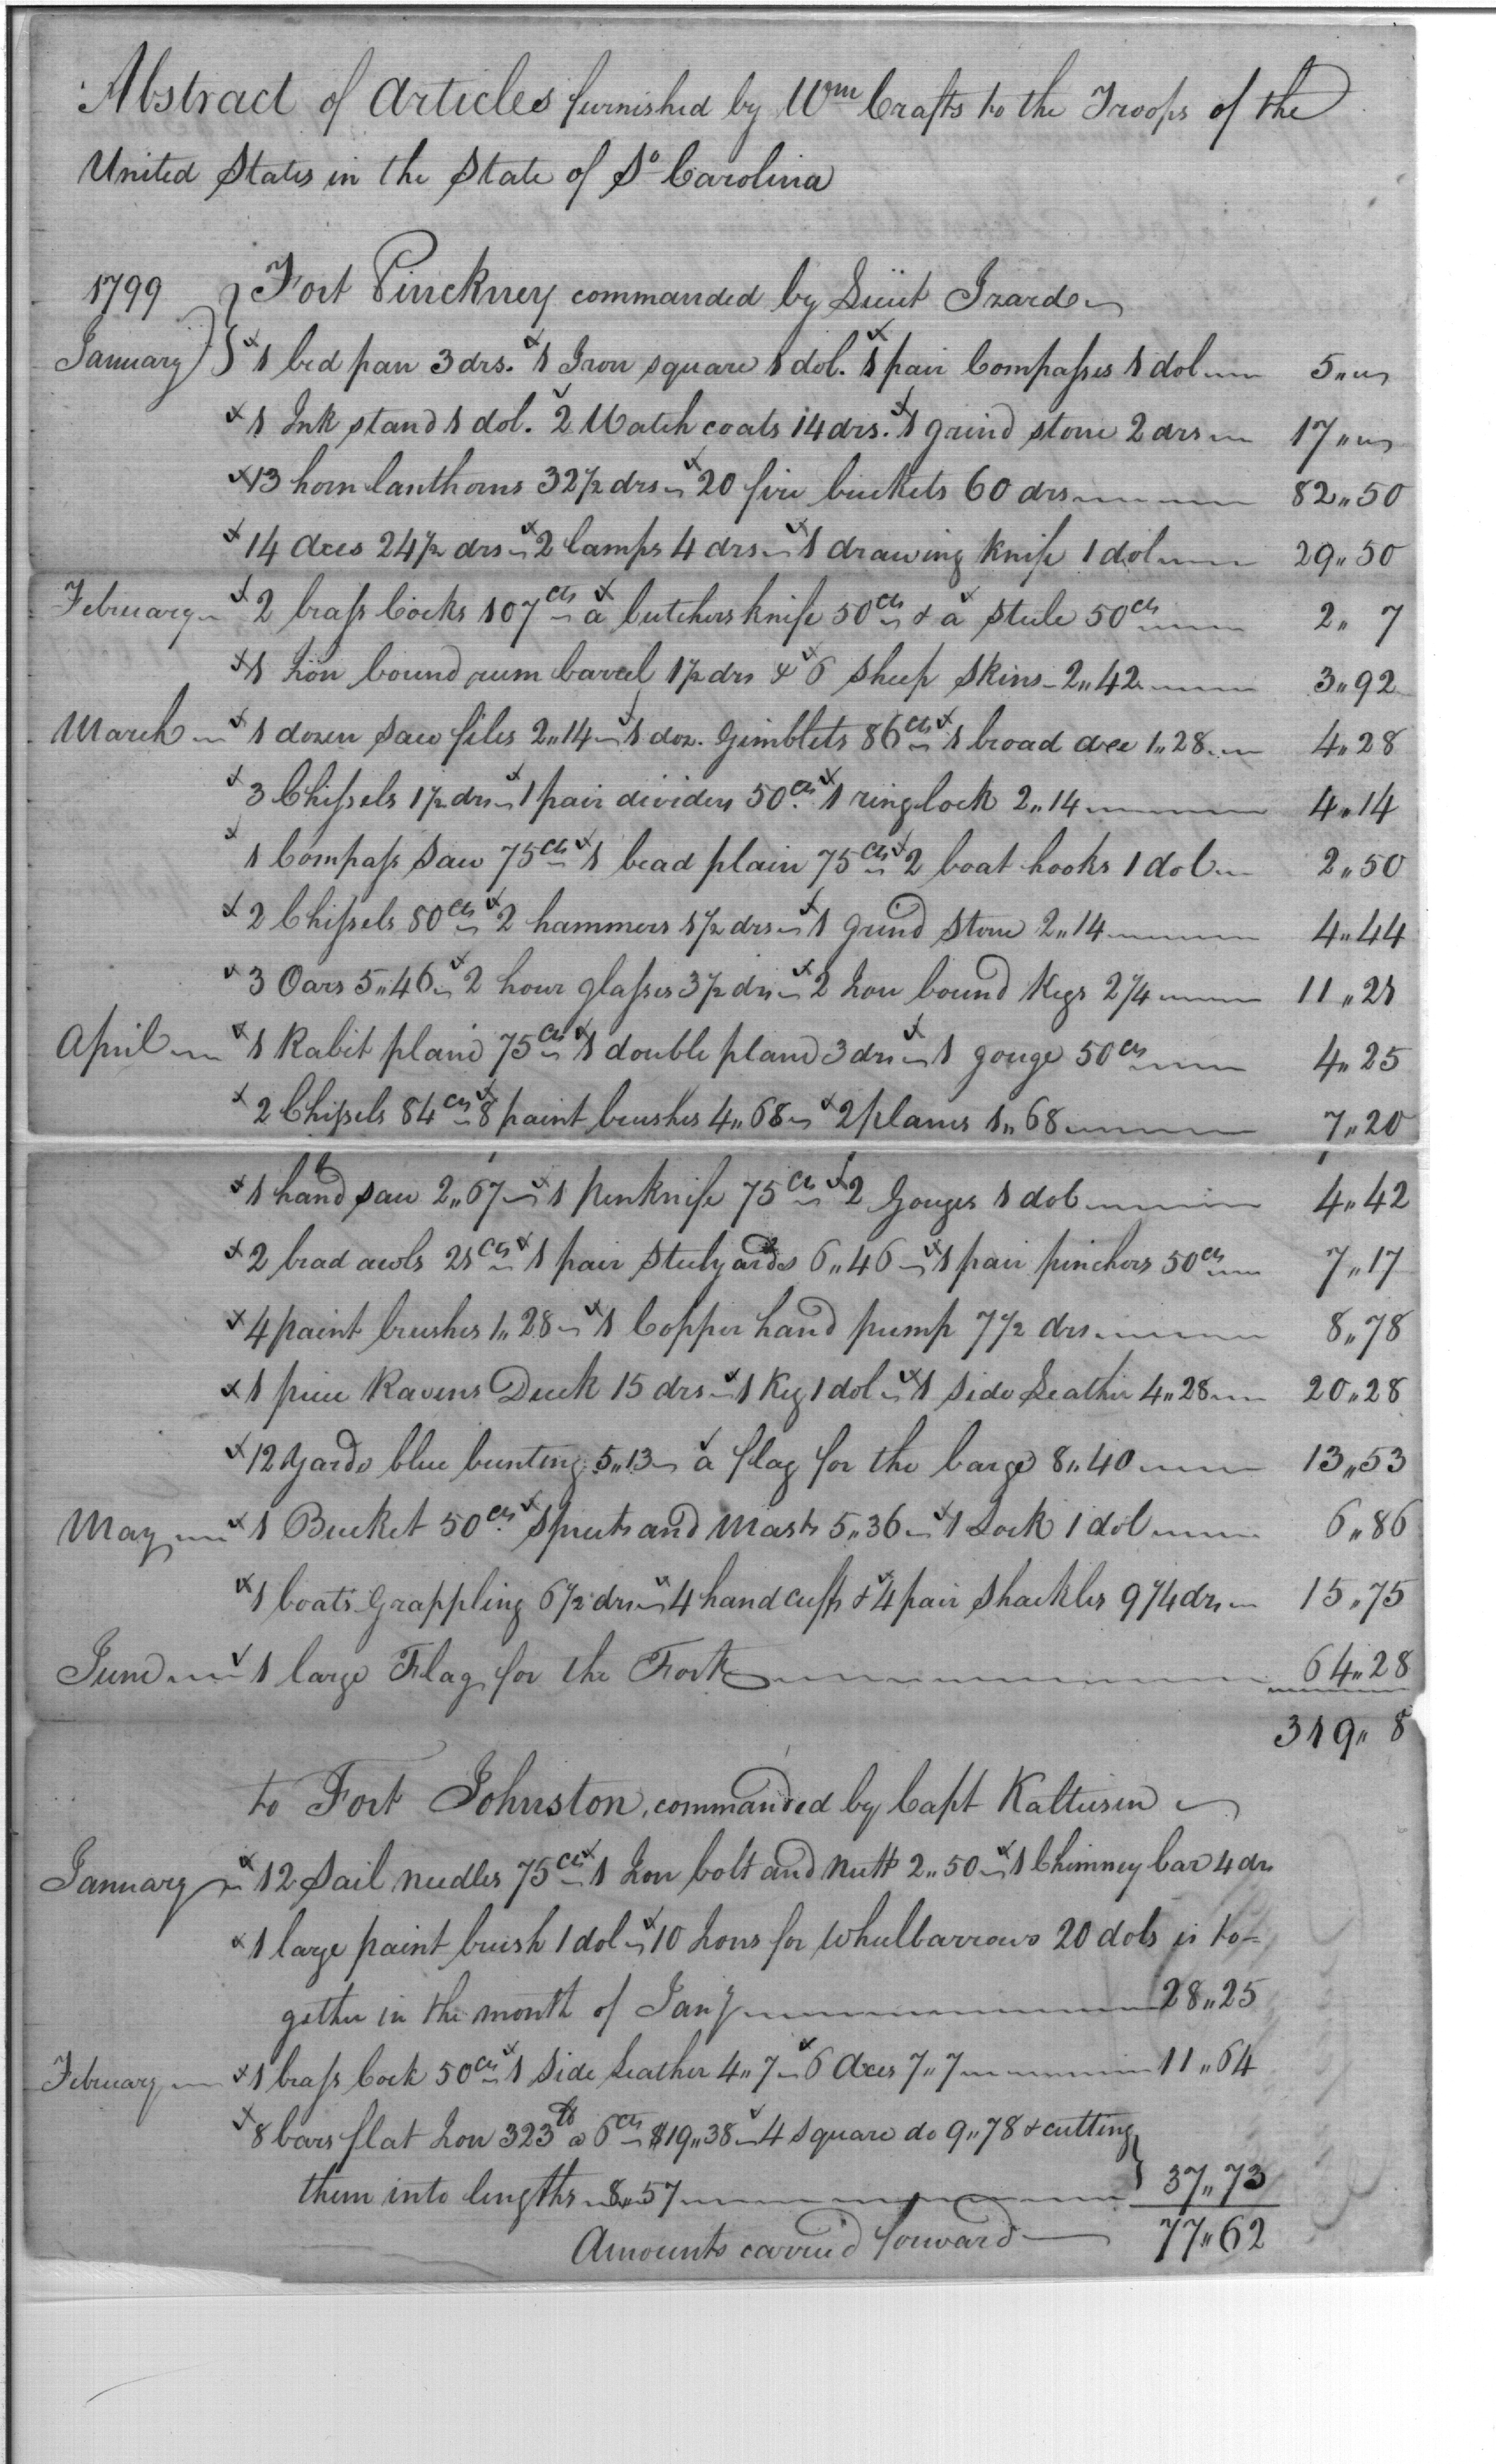 Abstract of Articles furnished by Wm Crafts to the Troops of the
United States in the State of So Carolina
1799 } Fort Pinckney commanded by Lieut Izard
January } 1 bed pan 3 drs. 1 Iron square 1 dol. 1 pair Compasses 1 dol 5,,
1 Ink stand 1 dol. 2 Watch coats 14 drs. 1 grind stone 2 drs 17,,
13 horn lanthorns 32 1/2 drs 20 fire buckets 60 drs 82,,50
14 axes 24 1/2 drs 2 lamps 4 drs 1 drawing knife 1 dol 29,,50
February 2 brass Cocks 107 cts a butchers knife 50 cts & a steele 50 cts 2,,7
1 Iron bound rum barrel 1 1/2 drs & 6 sheep skins 2,,42 3,,92
March 1 dozen saw files 2,,14 1 doz. Gimblets 86 cts 1 broad axe 1,,28 4,,28
3 Chissels 1 1/2 drs 1 pair dividers 50 cts. 1 ring lock 2,,14 4,,14
1 Compass Saw 75 cts 1 bead plain 75 cts 2 boat hooks 1 dol 2,,50
2 Chissels 80 cts 2 hammers 1 1/2 drs 1 grind stone 2,,14 4,,44
3 Oars 5,,46 2 hour glasses 3 1/2 drs 2 Iron bound Kegs 2 1/4 11,,21
April 1 Rabit plane 75 cts 1 double plane 3 drs 1 gouge 50 cts 4,,25
2 Chissels 84 cts 8 paint brushes 4,,68 2 planes 1,,68 7,,20
1 hand saw 2,,67 1 penknife 75 cts 2 Gouges 1 dol 4,,42
2 brad awls 21 cts 1 pair steelyards 6,,46 1 pair pinchers 50 cts 7,,17
4 paint brushes 1,,28 1 Copper hand pump 7 1/2 drs 8,,78
1 piece Ravens Duck 15 drs 1 Keg 1 dol 1 side Leather 4,,28 20,,28
12 yards blue bunting 5,,13 a flag for the barge 8,,40 13,,53
May 1 Bucket 50 cts. Spreets and Masts 5,,36 1 Lock 1 dol 6,,86
1 boats Grappling 6 1/2 drs 4 hand cuffs & 4 pair shackles 9 1/4 drs 15,,75
June 1 large Flag for the Fort 64,,28
319,,8
to Fort Johnston, commanded by Capt Kalteisen
January 12 Sail needles 75 cts 1 Iron bolt and nutt 2,,50 1 Chimney bar 4 drs
1 large paint brush 1 dol 10 Irons for wheelbarrows 20 dols is to-
gether in the month of Jany 28,,25
February 1 brass Cock 50 cts 1 side Leather 4,,7 6 Axes 7,,7 11,,64
8 bars flat Iron 323 lb a 6 cts $19,,38 4 square do 9,,78 & cutting }
them into lengths 8,,57 37,,73
Amounts carried forward 77,,62